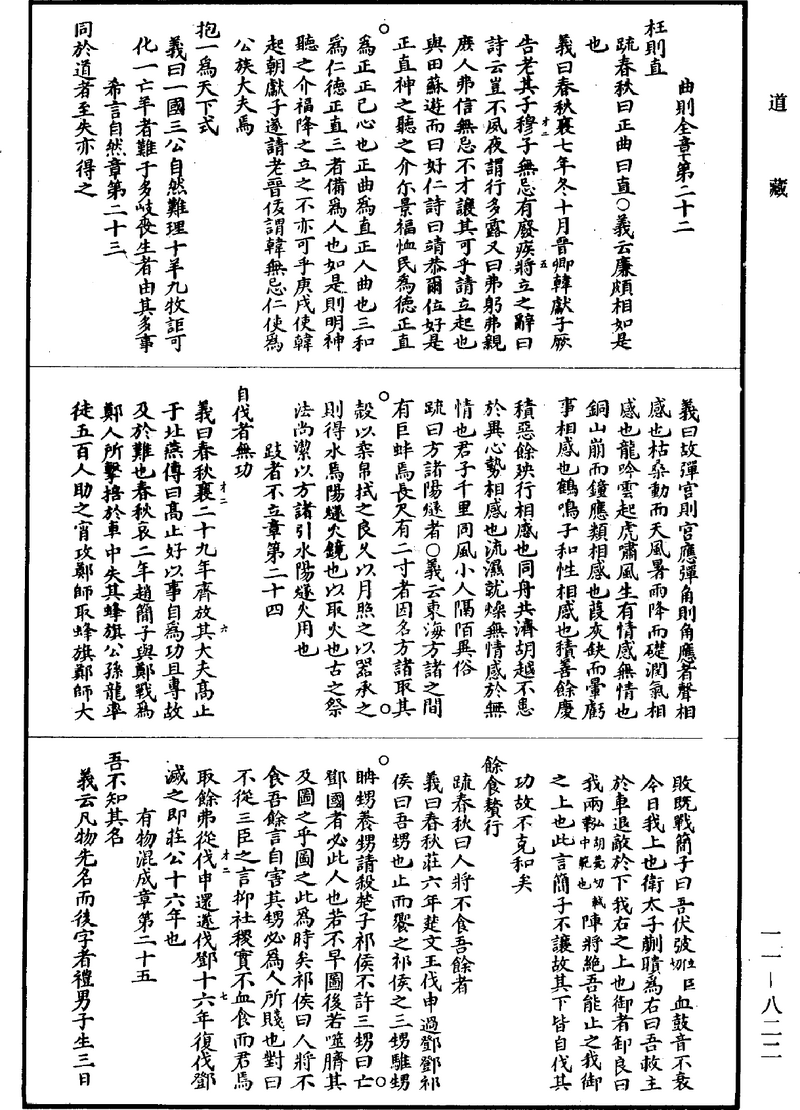 道藏
曲則全章第二十二
枉則直
疏春秋曰正曲曰直○義云廉頗相如是
也
義曰春秋襄七年冬十月晉卿韓獻子厥
告老其子穆子無忌有廢疾將立之辭曰
詩云豈不夙夜謂行多露又曰弗躬弗親
庶人弗信無忌不才讓其可乎請立起也
與田蘇遊而曰好仁詩曰靖恭爾位好是
正直神之聽之介尒景福恤民爲德正直
爲正正己心也正曲爲直正人曲也三和
爲仁德正直三者備爲人也如是則明神
聽之介福降之立之不亦可乎庚戌使韓
起朝獻子遂請老晉侯謂韓無忌仁使爲
公族大夫焉
抱一爲天下式
義曰一國三公自然難理十羊九牧詎可
化一亡羊者難于多岐喪生者由其多事
希言自然章第二十三
同於道者至失亦得之
義曰故彈宫則宫應彈角則角應者聲相
感也枯桑動而天風暑雨降而礎潤氣相
感也龍吟雲起虎嘯風生有情感無情也
銅山崩而鐘應類相感也葭灰缺而暈虧
事相感也鶴鳴子和性相感也積善餘慶
積惡餘殃行相感也同舟共濟胡越不患
於異心勢相感也流濕就燥無情感於無
情也君子千里同風小人隔陌異俗
疏曰方諸陽燧者○義云東海方諸之間
有巨蚌焉長尺有二寸者因名方諸取其
殼以柔帛拭之良久以月照之以器承之
則得水焉陽燧火鏡也以取火也古之祭
法尚潔以方諸引水陽燧火用也
跂者不立章第二十四
自伐者無功
義曰春秋襄二十九年齊放其大夫高止
于北燕傳曰高止好以事自爲功且專故
及於難也春秋哀二年趙簡子與鄭戰爲
鄭人所擊掊於車中失其蜂旗公孫龍率
徒五百人助之宵攻鄭師取蜂旗鄭師大
敗既戰簡子曰吾伏弢嘔血鼓音不衰
今日我上也衛太子蒯聵爲右曰吾救主
於車退敵於下我右之上也御者郵良曰
我兩靷將絶吾能止之我御
之上也此言簡子不讓故其下皆自伐其
功故不克和矣
餘食贅行
疏春秋曰人將不食吾餘者
義曰春秋莊六年楚文王伐申過鄧鄧祁
侯曰吾甥也止而饗之祁侯之三甥騅甥
聃甥養甥請殺楚子祁侯不許三甥曰亡
鄧國者必此人也若不早圖後若噬臍其
及圖之乎圖之此爲時矣祁侯曰人將不
食吾餘言自害其甥必爲人所賤也對曰
不從三臣之言抑社稷實不血食而君焉
取餘弗從伐申還遂伐鄧十六年復伐鄧
滅之即莊公十六年也
有物混成章第二十五
吾不知其名
義云凡物先名而後字者禮男子生三日
一一—八二二